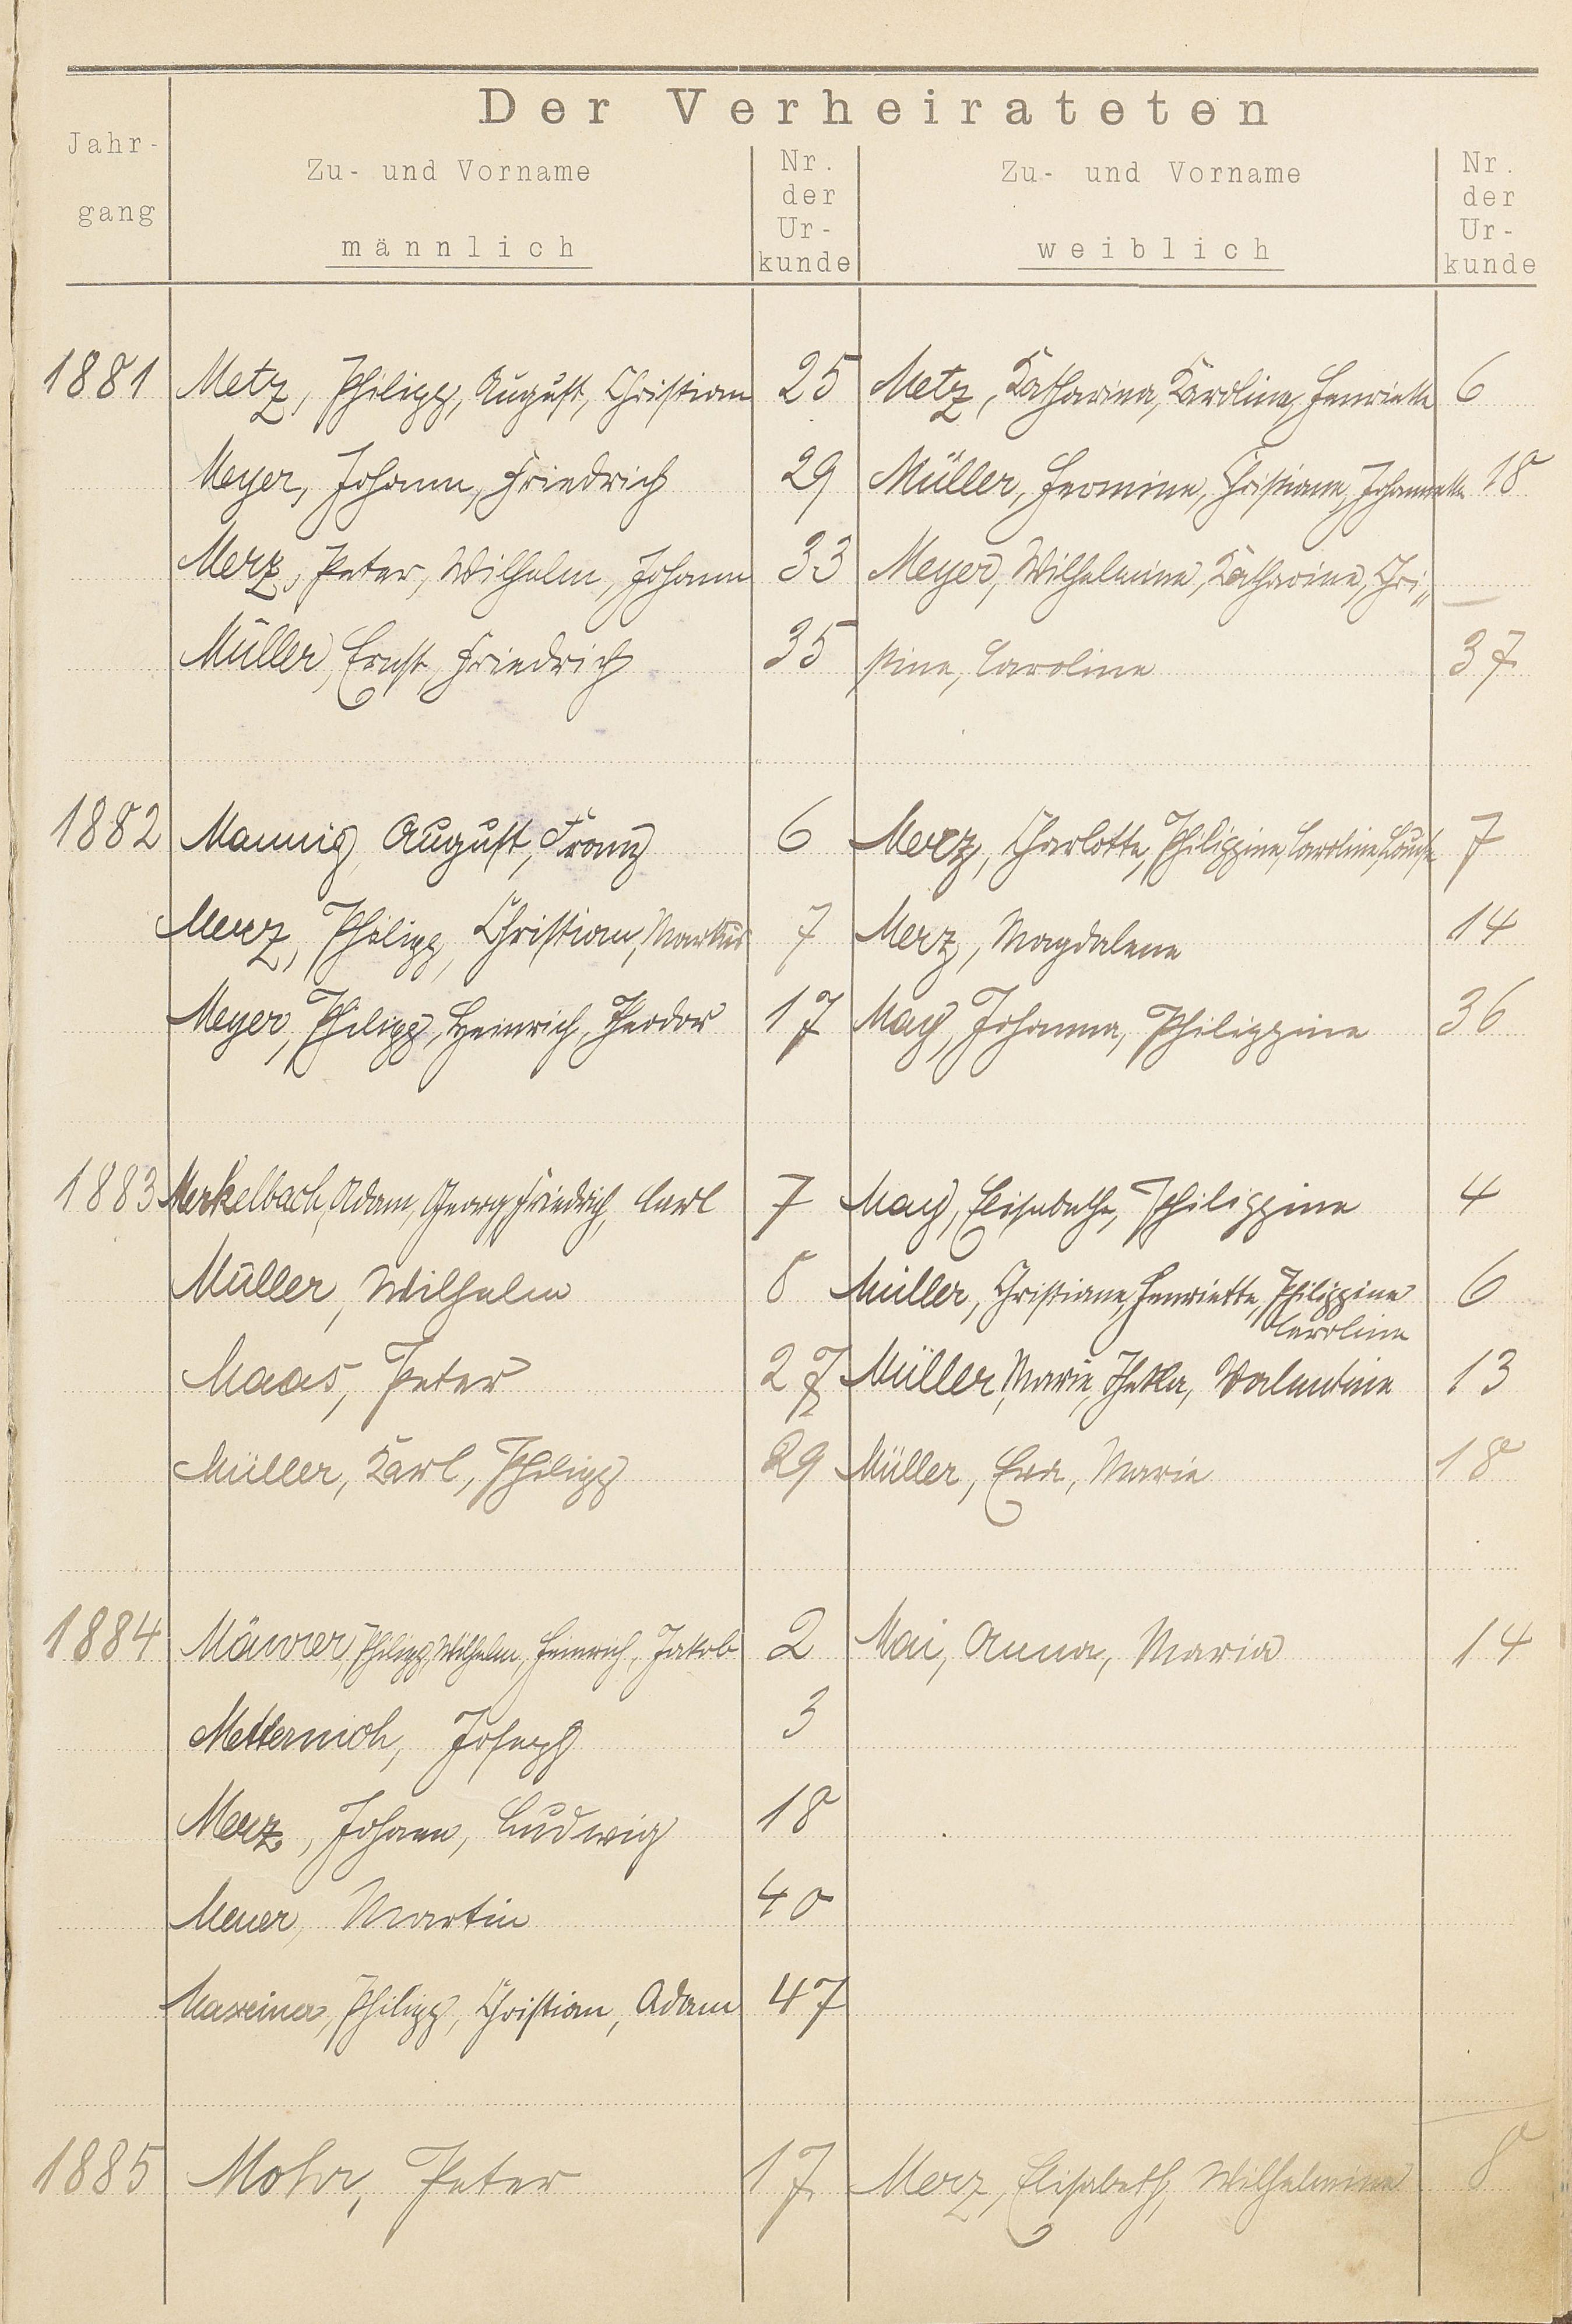 Der Verheirateten
Jahr-
gang
Zu- und Vorname
männlich
Nr.
der
Ur-
kunde
Zu- und Vorname
weiblich
Nr.
der
Ur-
kunde
1881 Metz, Philipp, August, Christian 25 Metz, Katharina, Karoline, Henriette 6
Meyer, Johann, Friedrich 29 Müller, Hermine, Christiane, Johannette 18
Merz, Peter, Wilhelm, Johann 33 Meyer, Wilhelmine, Katharine, Chri„
Müller, Ernst, Friedrich 35 stine, Caroline 37
1882 August, Franz 6 Merz, Charlotte, Philippine, Caroline, Louise 7
Merz, Philipp, Christian, Markus 7 Merz, Magdalene 14
Meyer, Philipp, Heinrich, Theodor 17 May, Johanna, Philippine 36
1883 Merkelbach, Adam, Georg, Friedrich, Carl 7 May, Elisabethe, Philippine 4
Müller, Wilhelm 8 Müller, Christiane, Henriette, Philippine 6
Caroline
Maas, Peter 27 Müller, Marie, Thekla, Valentine 13
Müller, Karl, Philipp 29 Müller, Eva, Marie 18
1884 Mäurer, Philipp, Wilhelm, Heinrich, Jakob 2 Mai, Anna, Maria 14
Metternich, Joseph 3
Merz, Johann, Ludwig 18
Martin 40
Maxeiner, Philipp, Christian, Adam 47
1885 Mohr, Peter 17 Merz, Elisabeth, Wilhelmine 8